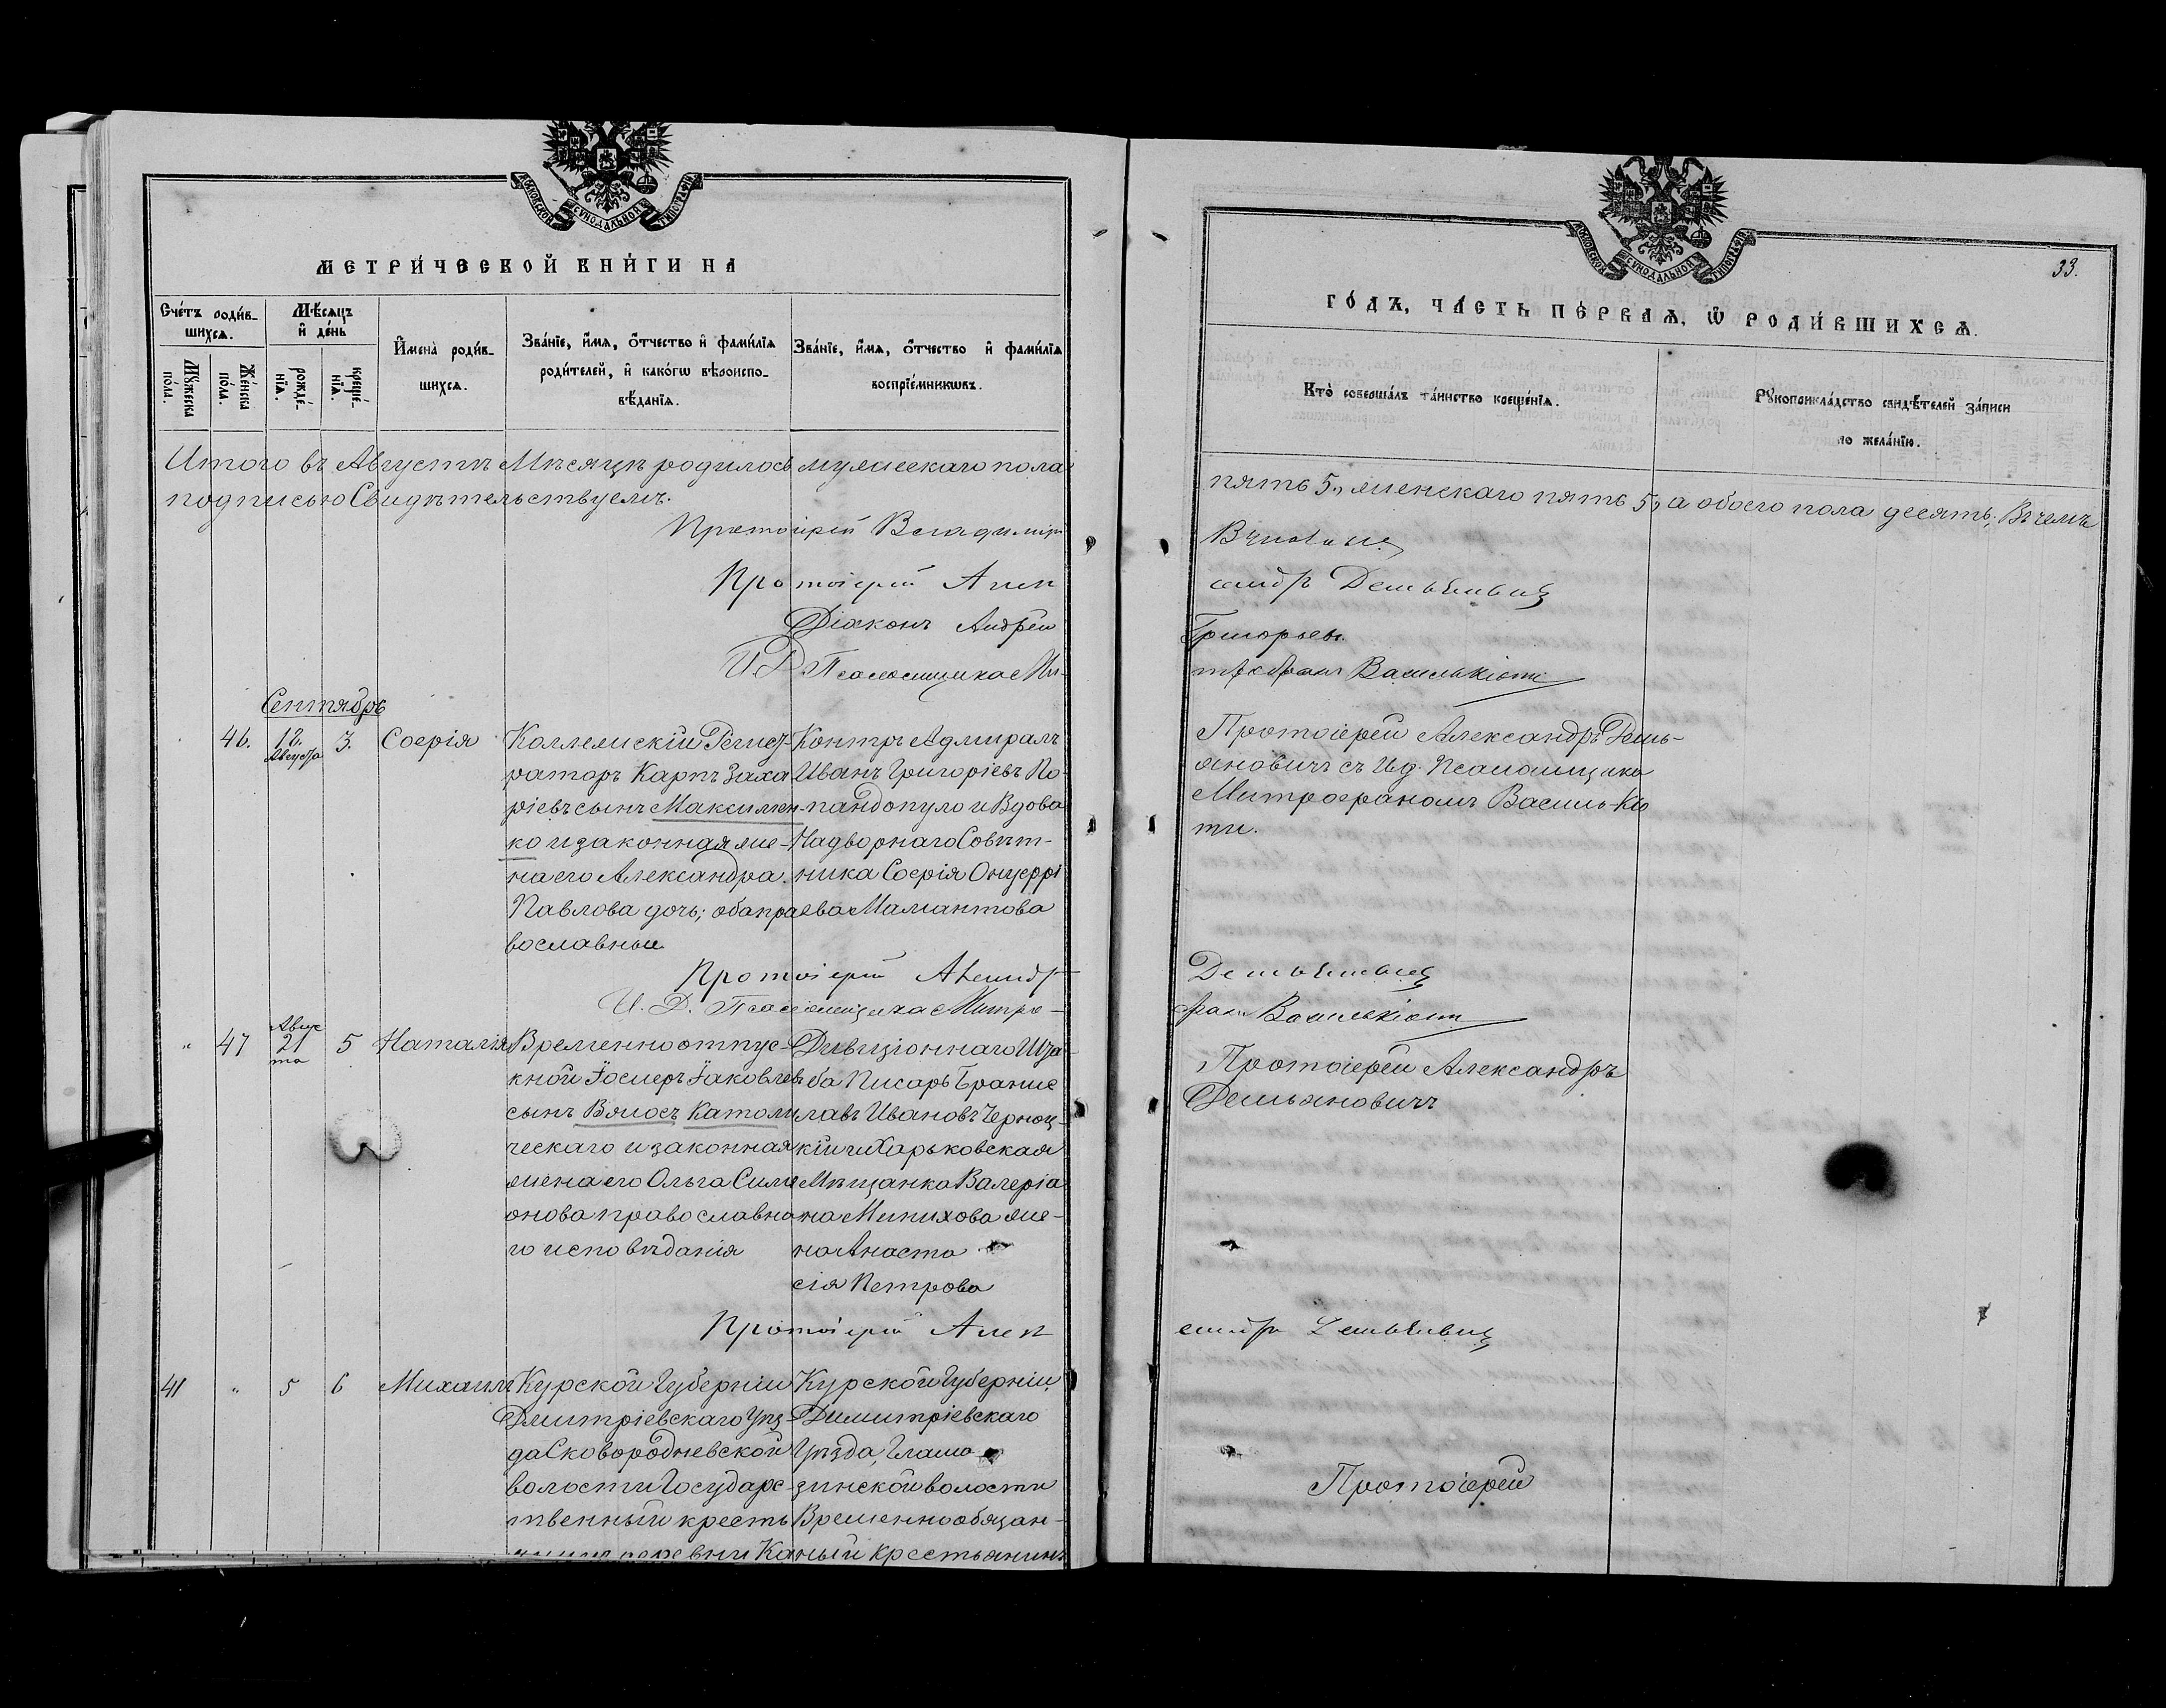 МОСКОВСКОЙ СѴНОДАЛЬНОЙ ТИПОГРАФІИ
МЕТРИ́ЧЕСКОЙ КНИ́ГИ НА
Сче́тъ роди́в-
шихсѧ.
Мѣ́сѧцъ
и҆ де́нь
Мꙋ́жеска
по́ла.
Же́нска
по́ла.
рожде́-
нїѧ.
креще́-
нїѧ.
И҆мена̀ роди́в-
шихсѧ.
Зва́нїе, и҆́мѧ, о҆́тчество и҆ фами́лїѧ
роди́телей, и҆ како́гѡ вѣроиспо-
вѣ́данїѧ.
Зва́нїе, и҆́мѧ, о҆́тчество и҆ фами́лїѧ
воспрїе́мникѡвъ.
Итого въ Августѣ Мѣсяцѣ родилось мужескаго пола
подписью Свидѣтельствуемъ.
Протоіерей Владиміръ
Протоіерей Алек
Діаконъ Андрей
И. Д. Псаломщика Ми-
Сентябрь
46. 18. Августа 3. Софія
Коллежскій Регист-
раторъ Карпъ Заха
ріевъ сынъ Максимен-
ко и законная же-
на его Александра
Павлова дочь; оба пра
вославные
Контръ Адмиралъ
Иванъ Григоріевъ По-
пандопуло и Вдова
Надворнаго Совѣт-
ника Софія Онуфрі
ева Мамантова
Протоіерей Александръ
И. Д. Псаломщика Митро-
" 47 Авгус 21 та 5 Наталія
Временно отпус-
кной Іосифъ Іаковлевъ
сынъ Католи
ческаго и законная
жена его Ольга Сими
онова православна
го исповѣданія
Дивизіоннаго Шта-
ба Писарь Бранис
лавъ Ивановъ
кій и Харьковская
Мѣщанка Валеріа
на Минихова же-
на Анаста
сія Петрова
Протоіерей Алек
41 " 5 6 Михаилъ
Курской Губерніи
Дмитріевскаго Уѣз-
да Сковородневской
волости Государс-
твенный кресть
деревни Ка
Курской Губерніи,
Димитріевскаго
Уѣзда,
волости
Временнообязан-
ный крестьянинъ
МОСКОВСКОЙ СѴНОДАЛЬНОЙ ТИПОГРАФІИ
33.
ГО́ДЪ, ЧА́СТЬ ПЕ́РВАѦ, Ѡ҆ РОДИ́ВШИХСѦ.
Кто̀ соверша́лъ та́инство креще́нїѧ.
Рꙋкоприкла́дство свидѣ́телей за́писи
по жела́нїю.
пять 5., женскаго пять 5, а обоего пола десять; Въ чемъ
сандръ Демьяновичъ
Григорьевъ.
трофанъ Василькіоти
Протоіерей Александръ Демь-
яновичъ съ И. д. Псаломщика
Митрофаномъ Василькіо
ти.
Демьяновичъ
фанъ Василькіоти
Протоіерей Александръ
Демьяновичъ
сандръ Демьяновичъ
Протоіерей